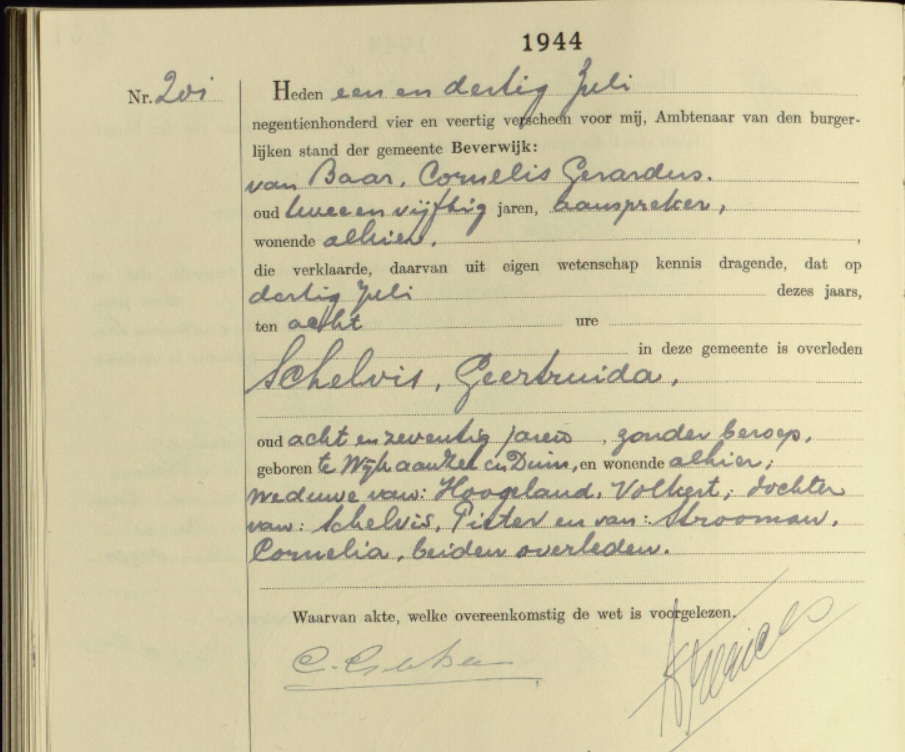 1944
Nr. 201 Heden een en dertig Juli
negentienhonderd vier en veertig verscheen voor mij, Ambtenaar van den burger-
lijken stand der gemeente Beverwijk:
van Baar, Cornelis Gerardus.
oud twee en vijftig jaren, aanspreker,
wonende alhier,
die verklaarde, daarvan uit eigen wetenschap kennis dragende, dat op
dertig Juli dezes jaars,
ten acht ure
in deze gemeente is overleden
Schelvis, Geertruida,
oud acht en zeventig jaren, zonder beroep,
geboren te Wijk aan Zee en Duin, en wonende alhier;
weduwe van: Hoogeland, Volkert; dochter
van: Schelvis, Pieter en van: Strooman,
Cornelia, beiden overleden.
Waarvan akte, welke overeenkomstig de wet is voorgelezen.